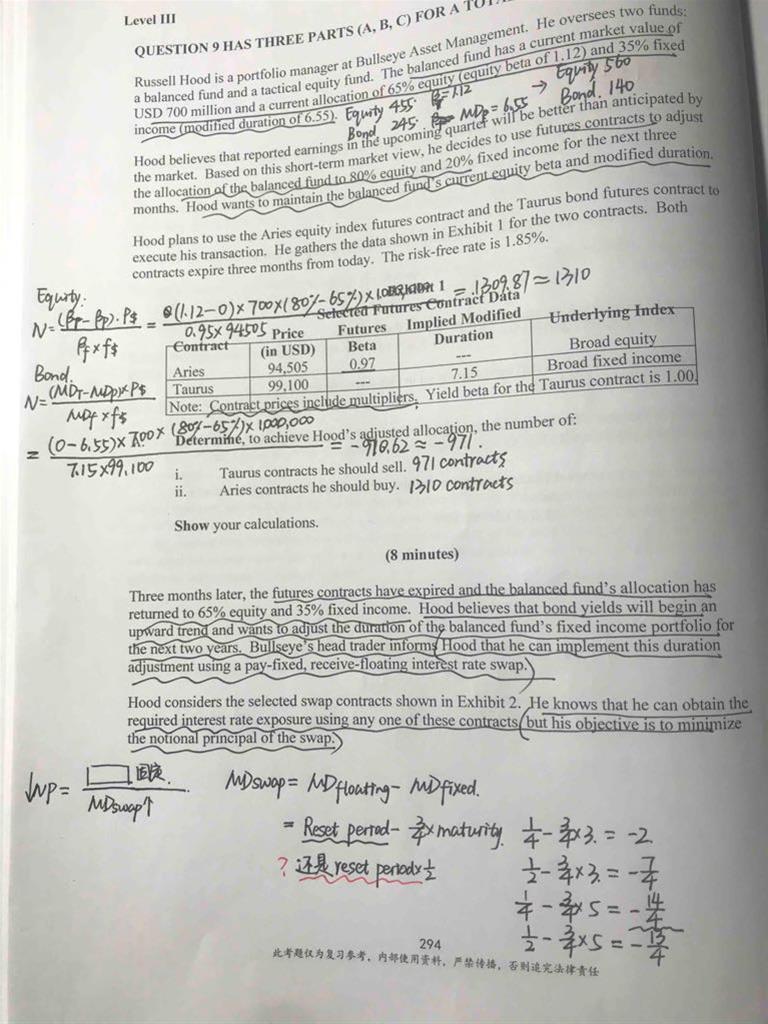 Level III
QUESTION 9 HAS THREE PARTS (A, B, C) FOR A TOTA
Russell Hood is a portfolio manager at Bullseye Asset Management. He oversees two funds:
a balanced fund and a tactical equity fund. The balanced fund has a current market value of
USD 700 million and a current allocation of 65% equity (equity beta of 1.12) and 35% fixed
income (modified duration of 6.55).
Equity 455. βp=1.12 → Equity 560
Bond 245. MDp = 6.55 Bond. 140
Hood believes that reported earnings in the upcoming quarter will be better than anticipated by
the market. Based on this short-term market view, he decides to use futures contracts to adjust
the allocation of the balanced fund to 80% equity and 20% fixed income for the next three
months. Hood wants to maintain the balanced fund's current equity beta and modified duration.
Hood plans to use the Aries equity index futures contract and the Taurus bond futures contract to
execute his transaction. He gathers the data shown in Exhibit 1 for the two contracts. Both
contracts expire three months from today. The risk-free rate is 1.85%.
Equity.
N= (βT-βp)·P$ / βf×f$ = (1.12-0)×700×(80%-65%)×1,000,000 / 0.95×94505 = 1309.87≈1310
Selected Futures Contract Data
Contract Price (in USD) Futures Beta Implied Modified Duration Underlying Index
Aries 94,505 0.97 --- Broad equity
Taurus 99,100 --- 7.15 Broad fixed income
Note: Contract prices include multipliers. Yield beta for the Taurus contract is 1.00.
Bond.
N= (MDT-MDp)×P$ / MDf×f$
= (0-6.55)×700×(80%-65%)×1,000,000 / 7.15×99,100 = -970.62≈-971.
Determine, to achieve Hood's adjusted allocation, the number of:
i. Taurus contracts he should sell. 971 contracts
ii. Aries contracts he should buy. 1310 contracts
Show your calculations.
(8 minutes)
Three months later, the futures contracts have expired and the balanced fund's allocation has
returned to 65% equity and 35% fixed income. Hood believes that bond yields will begin an
upward trend and wants to adjust the duration of the balanced fund's fixed income portfolio for
the next two years. Bullseye's head trader informs Hood that he can implement this duration
adjustment using a pay-fixed, receive-floating interest rate swap.
Hood considers the selected swap contracts shown in Exhibit 2. He knows that he can obtain the
required interest rate exposure using any one of these contracts but his objective is to minimize
the notional principal of the swap.
↓NP= 固定. / MDswap↑
MDswap= MDfloating- MDfixed.
= Reset period- 3/4×maturity.
? 还是reset period×1/2
1/4-3/4×3.=-2
1/2-3/4×3.=-7/4
1/4-3/4×5=-14/4
1/2-3/4×5=-13/4
294
此考题仅为复习参考，内部使用资料，严禁传播，否则追究法律责任